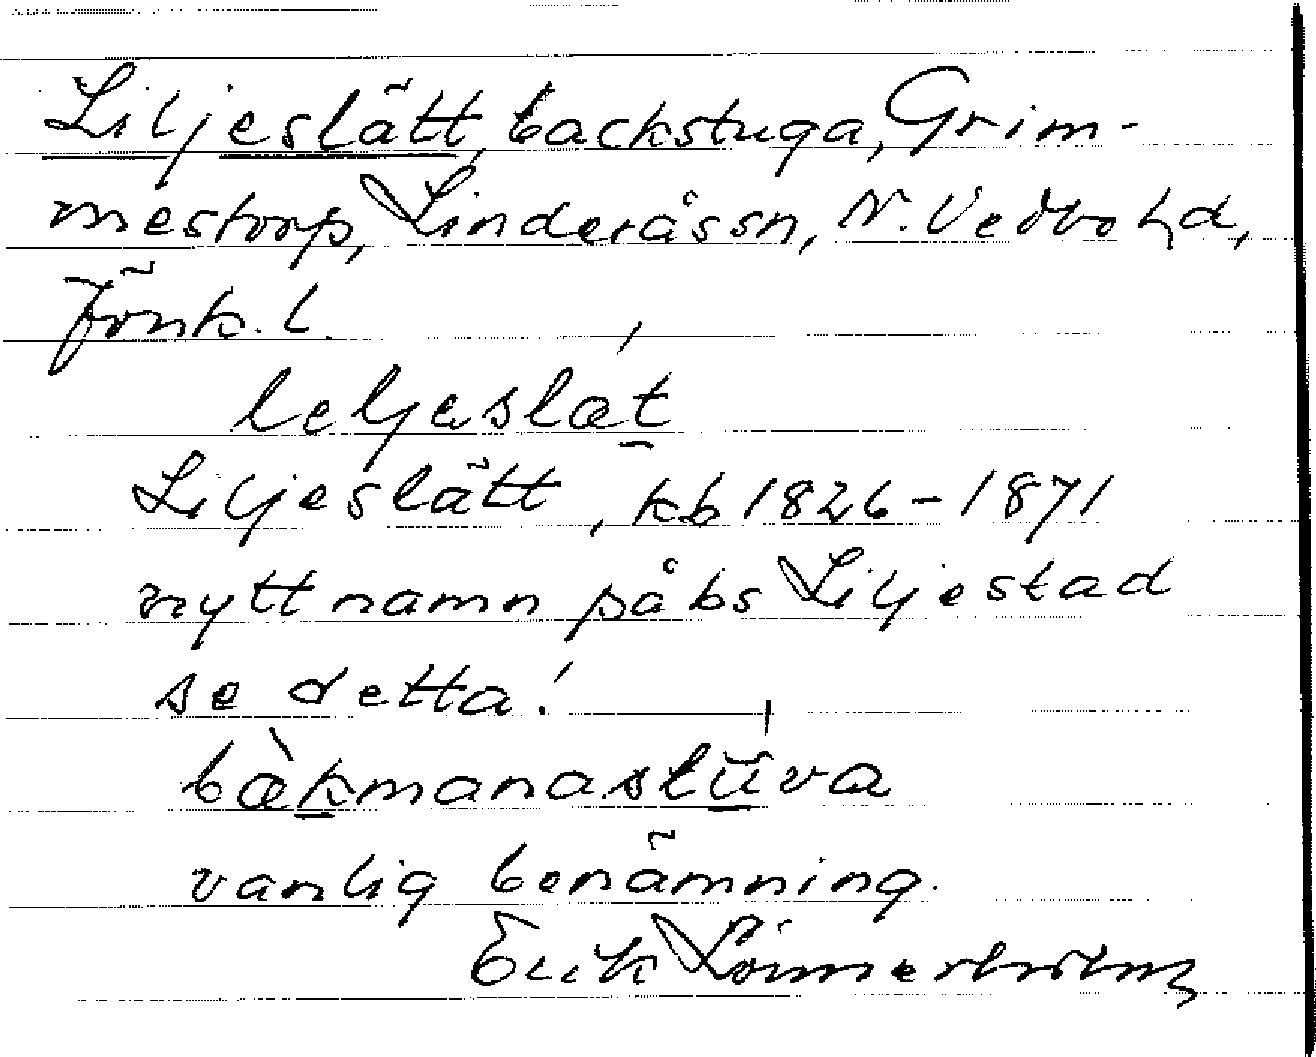 Liljeslätt, backstuga, Grim-
mestorp, Linderås sn, N. Vedbo hd,
Jönk. l.
leljeslæt
Liljeslätt, kb 1826-1871
nytt namn på bs Liljestad
se detta!
bàkmanastuva
vanlig benämning.
Erik